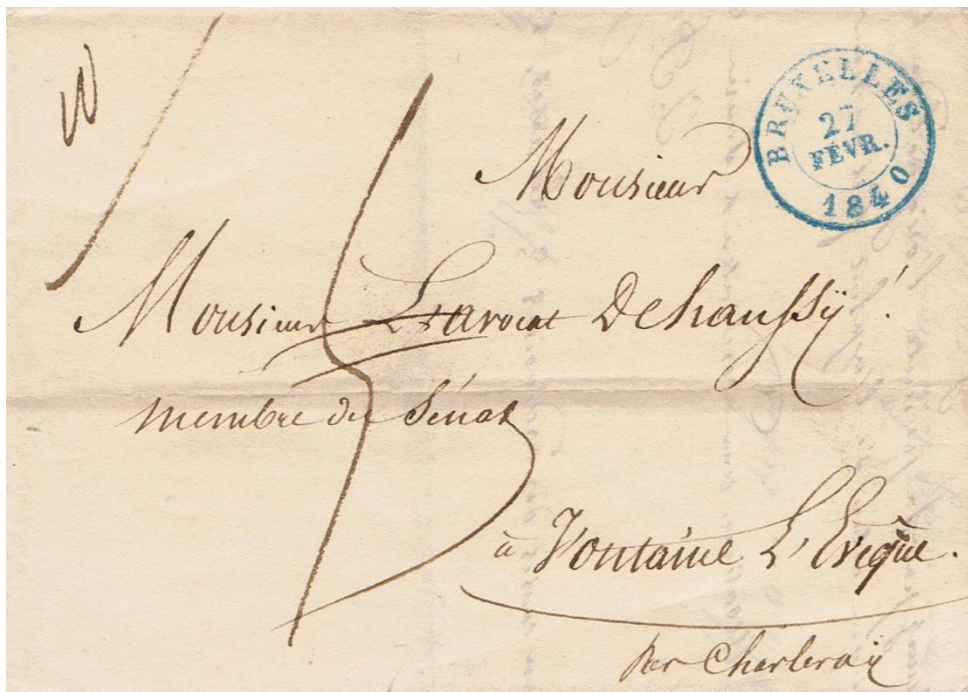 BRUXELLES
27
FÉVR.
1840
Monsieur
Monsieur L'avocat Dehaussÿ
membre du Sénat
à Fontaine L'Evêque.
Par Charleroÿ